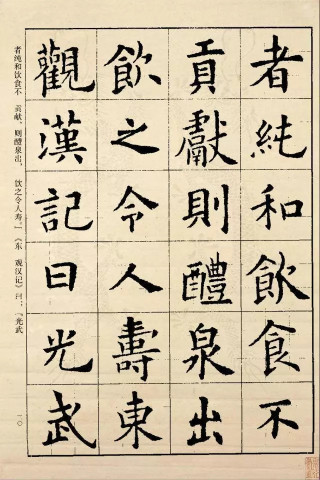 者純和飲食不
貢獻則醴泉出
飲之令人壽東
觀漢記曰光武
者纯和饮食不 贡献，则醴泉出， 饮之令人寿。」《东 观汉记》曰：「光武
一〇